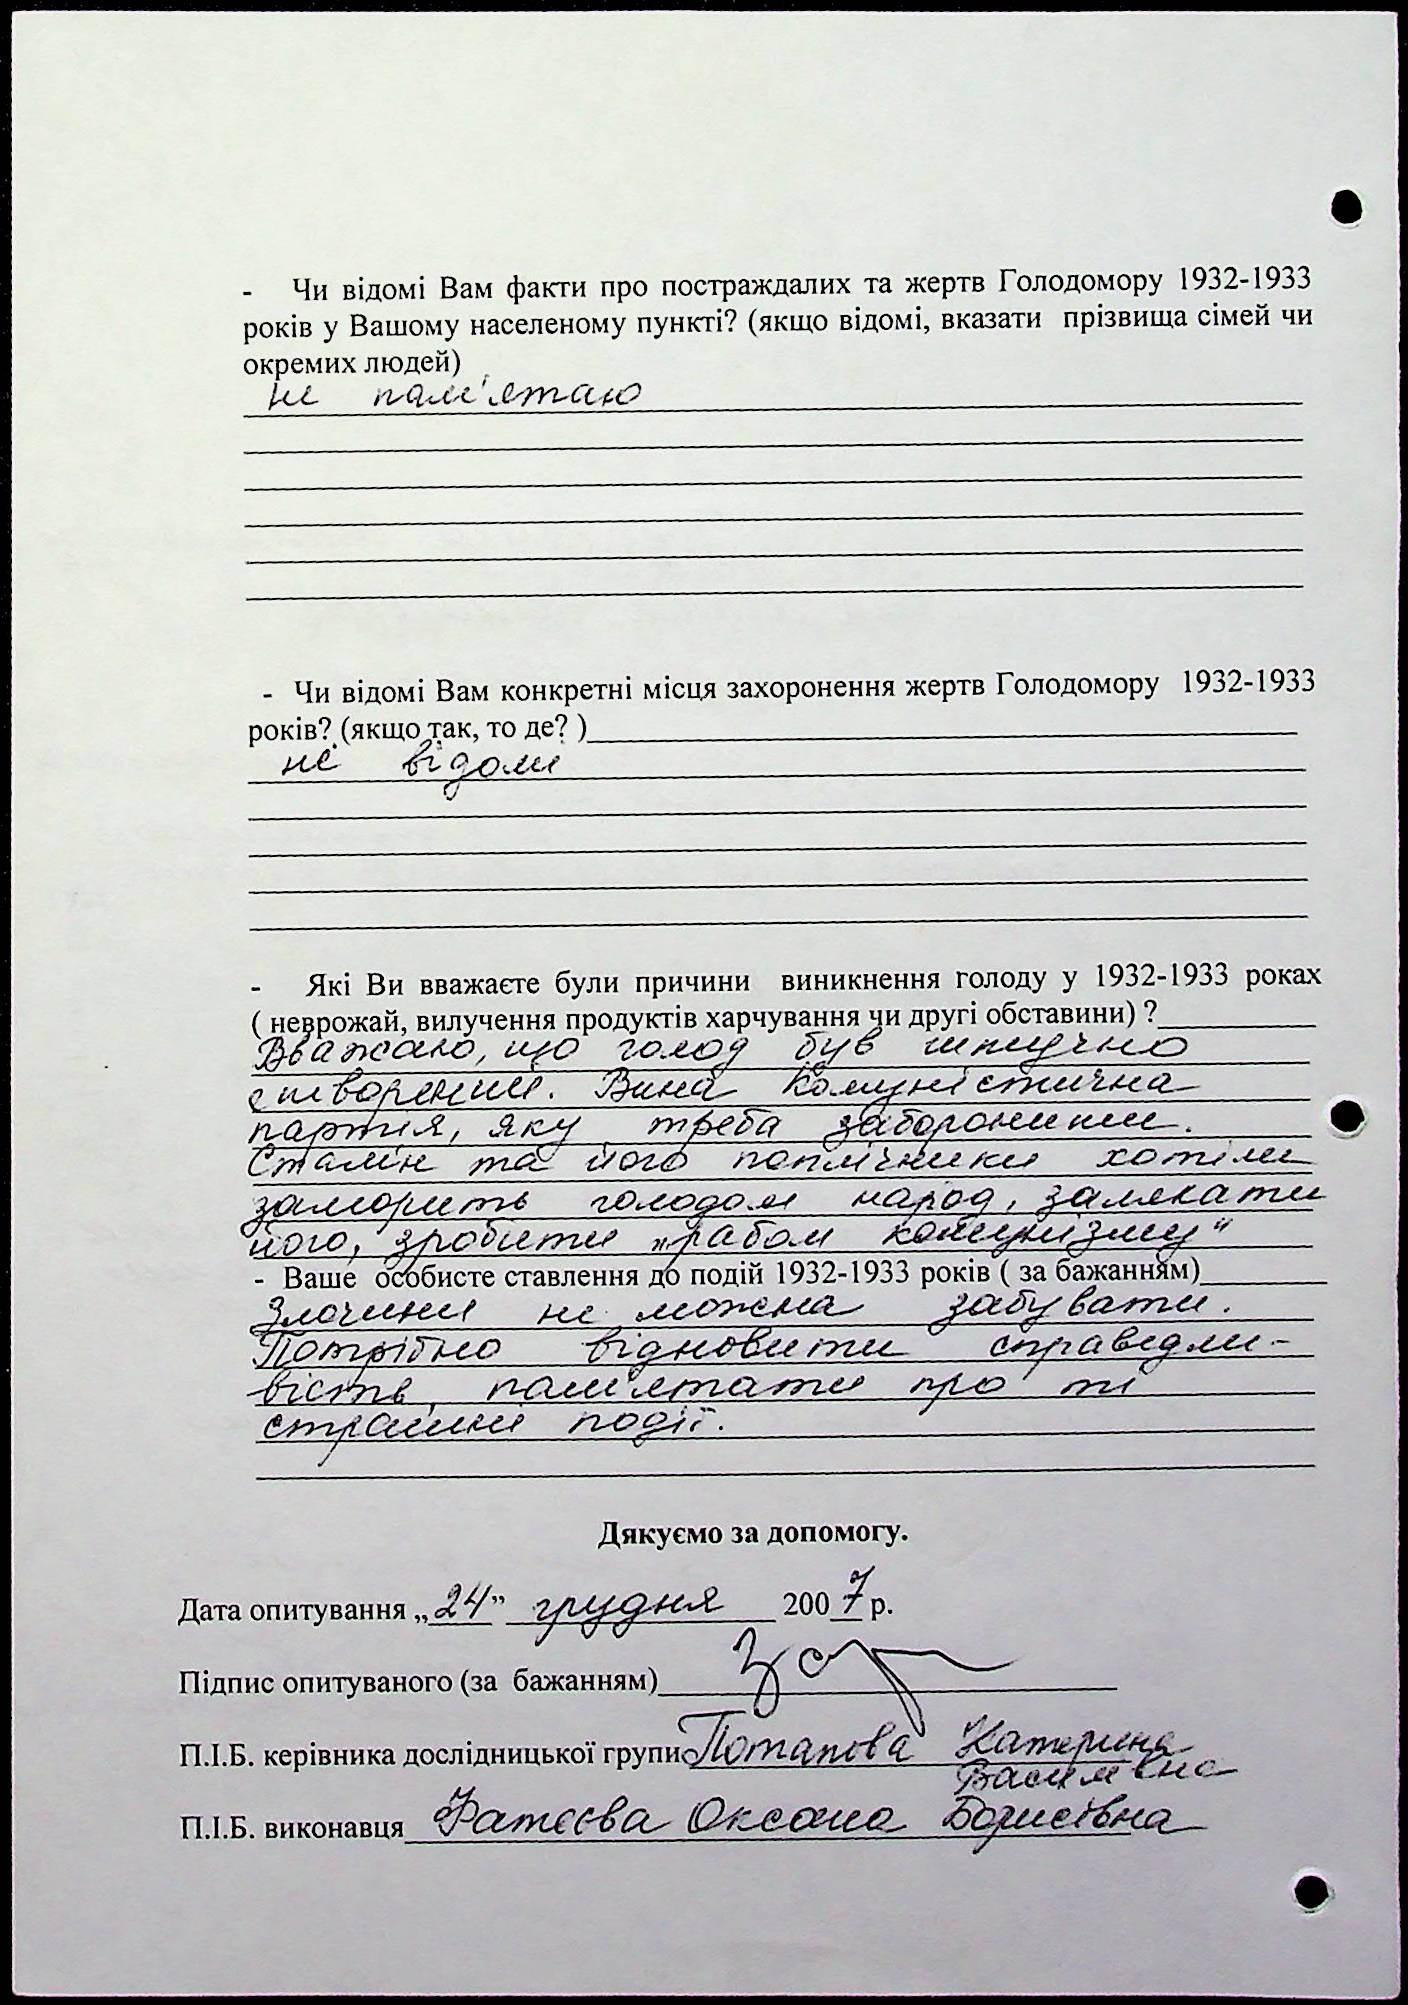 - Чи відомі Вам факти про постраждалих та жертв Голодомору 1932-1933
років у Вашому населеному пункті? (якщо відомі, вказати прізвища сімей чи
окремих людей)
не пам'ятаю
- Чи відомі Вам конкретні місця захоронення жертв Голодомору 1932-1933
років? (якщо так, то де? )
не відоми
- Які Ви вважаєте були причини виникнення голоду у 1932-1933 роках
( неврожай, вилучення продуктів харчування чи другі обставини) ?
Вважаю, що голод був штучно
створений. Вина Комуністична
партія, яку треба заборонити.
Сталін та його поплічники хотіли
заморить голодом народ, залякати
його, зробити „рабом комунізму"
- Ваше особисте ставлення до подій 1932-1933 років ( за бажанням)
Злочини не можна забувати.
Потрібно відновити справедли-
вість, пам'ятати про ті
страшні події.
Дякуємо за допомогу.
Дата опитування „24” грудня 2007 р.
Підпис опитуваного (за бажанням)
П.І.Б. керівника дослідницької групи Потапова Катерина
Василівна
П.І.Б. виконавця Фатєєва Оксана Борисівна